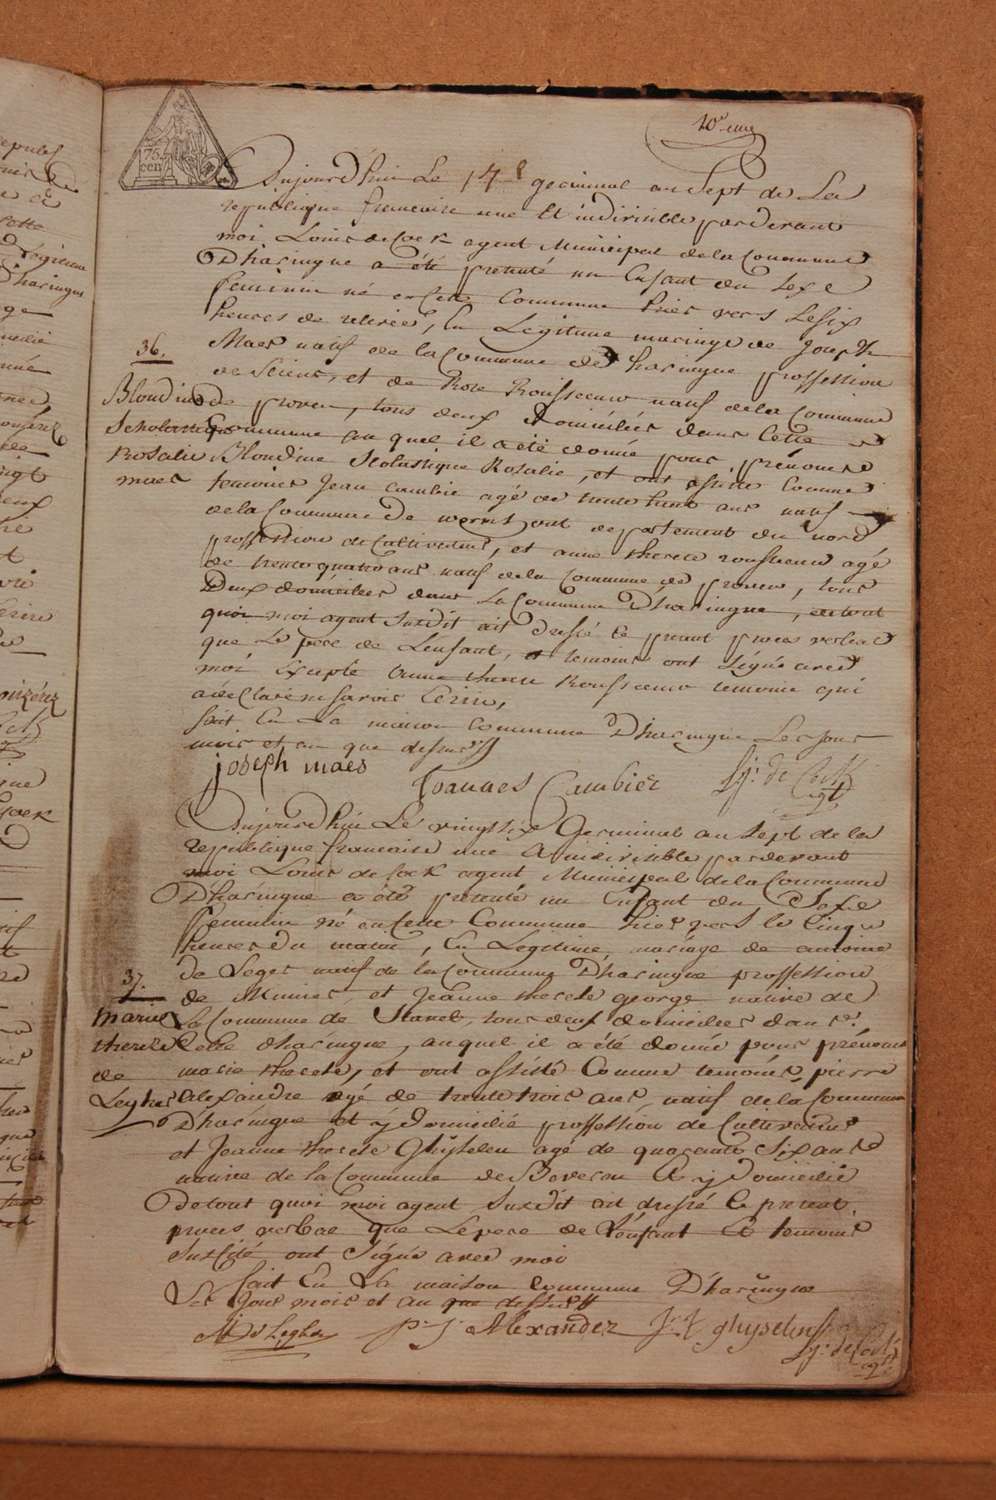 10e
75
cen
Aujourd'hui Le 14e germinal an Sept de La
republique francaise une Et indivisible pardevant
moi Louis de Cock agent Municipal de la Commune
D'haringue a été presenté un Enfant du Sexe
feminin né en cette Commune hier vers Les six
heures de relevée, En Legitime mariage de Joseph
Maes natif de la Commune de haringue proffession
de Scieur, et de Rose Rousseeuw natif de la Commune
de proven, tous deux domiciliés dans Cette
Commune au quel il a été donné pour prénoms
Blondine Scolastique Rosalie, et ont assisté Comme
temoins Jean cambie agé de trente huit ans natif
de la Commune de departement du nord
proffession de Cultivateur, et anne therese rousseeuw agé
de trente quatre ans natif de la Commune de proven, tous
Deux domiciliés dans La Commune D'haringue, de tout
quoi moi agent Susdit ait dressé le present proces verbal
que Le pere de L'enfant, et temoins ont signé avec
moi Excepté anne therese Rousseeuw temoin qui
a déclaré ne savoir Ecrire,
fait En La maison Commune D'haringue Les jour
mois et an que dessus
36.
Blondine
Scholastique
Rosalie
maes
joseph maes
Joannes Cambier
Lj: de Cock
agt
Aujourd'hui Le vingt six Germinal an Sept de la
republique francaise une & indivisible pardevant
moi Louis de Cock agent Municipal de la Commune
D'haringue a été presenté un Enfant du Sexe
feminin né en cette Commune hier vers le Cinq
heures du matin, En Legitime mariage de antoine
de Leger natif de la Commune D'haringue proffession
de Munier, et Jeanne therese george native de
La Commune de Stavel, tous deux domiciliés dans
Celle d'haringue, auquel il a été donné pour prénoms
marie therese, et ont assisté Comme temoins, pierre
alexandre agé de trente trois ans, natif de la Commune
D'haringue et y domicilié proffession de Cultivateur
et Jeanne therese Ghyselen agé de quarante six ans
native de la Commune de Beveren & y domicilié
De tout quoi moi agent Susdit ait dressé le present
proces verbal que Le pere de L'enfant Et temoins
Suscité ont Signé avec moi
fait En La maison Commune D'haringue
Les jour mois et an que dessus
37.
marie
therese
de
Leghe
P: J: Alexander
ghyselen
Lj: de Cock
agt